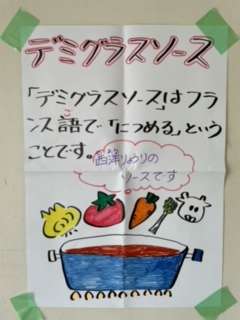 デミグラスソース
「デミグラスソース」はフラ
ンス語で「につめる」という
ことです。
西洋りょうりの
ソースです